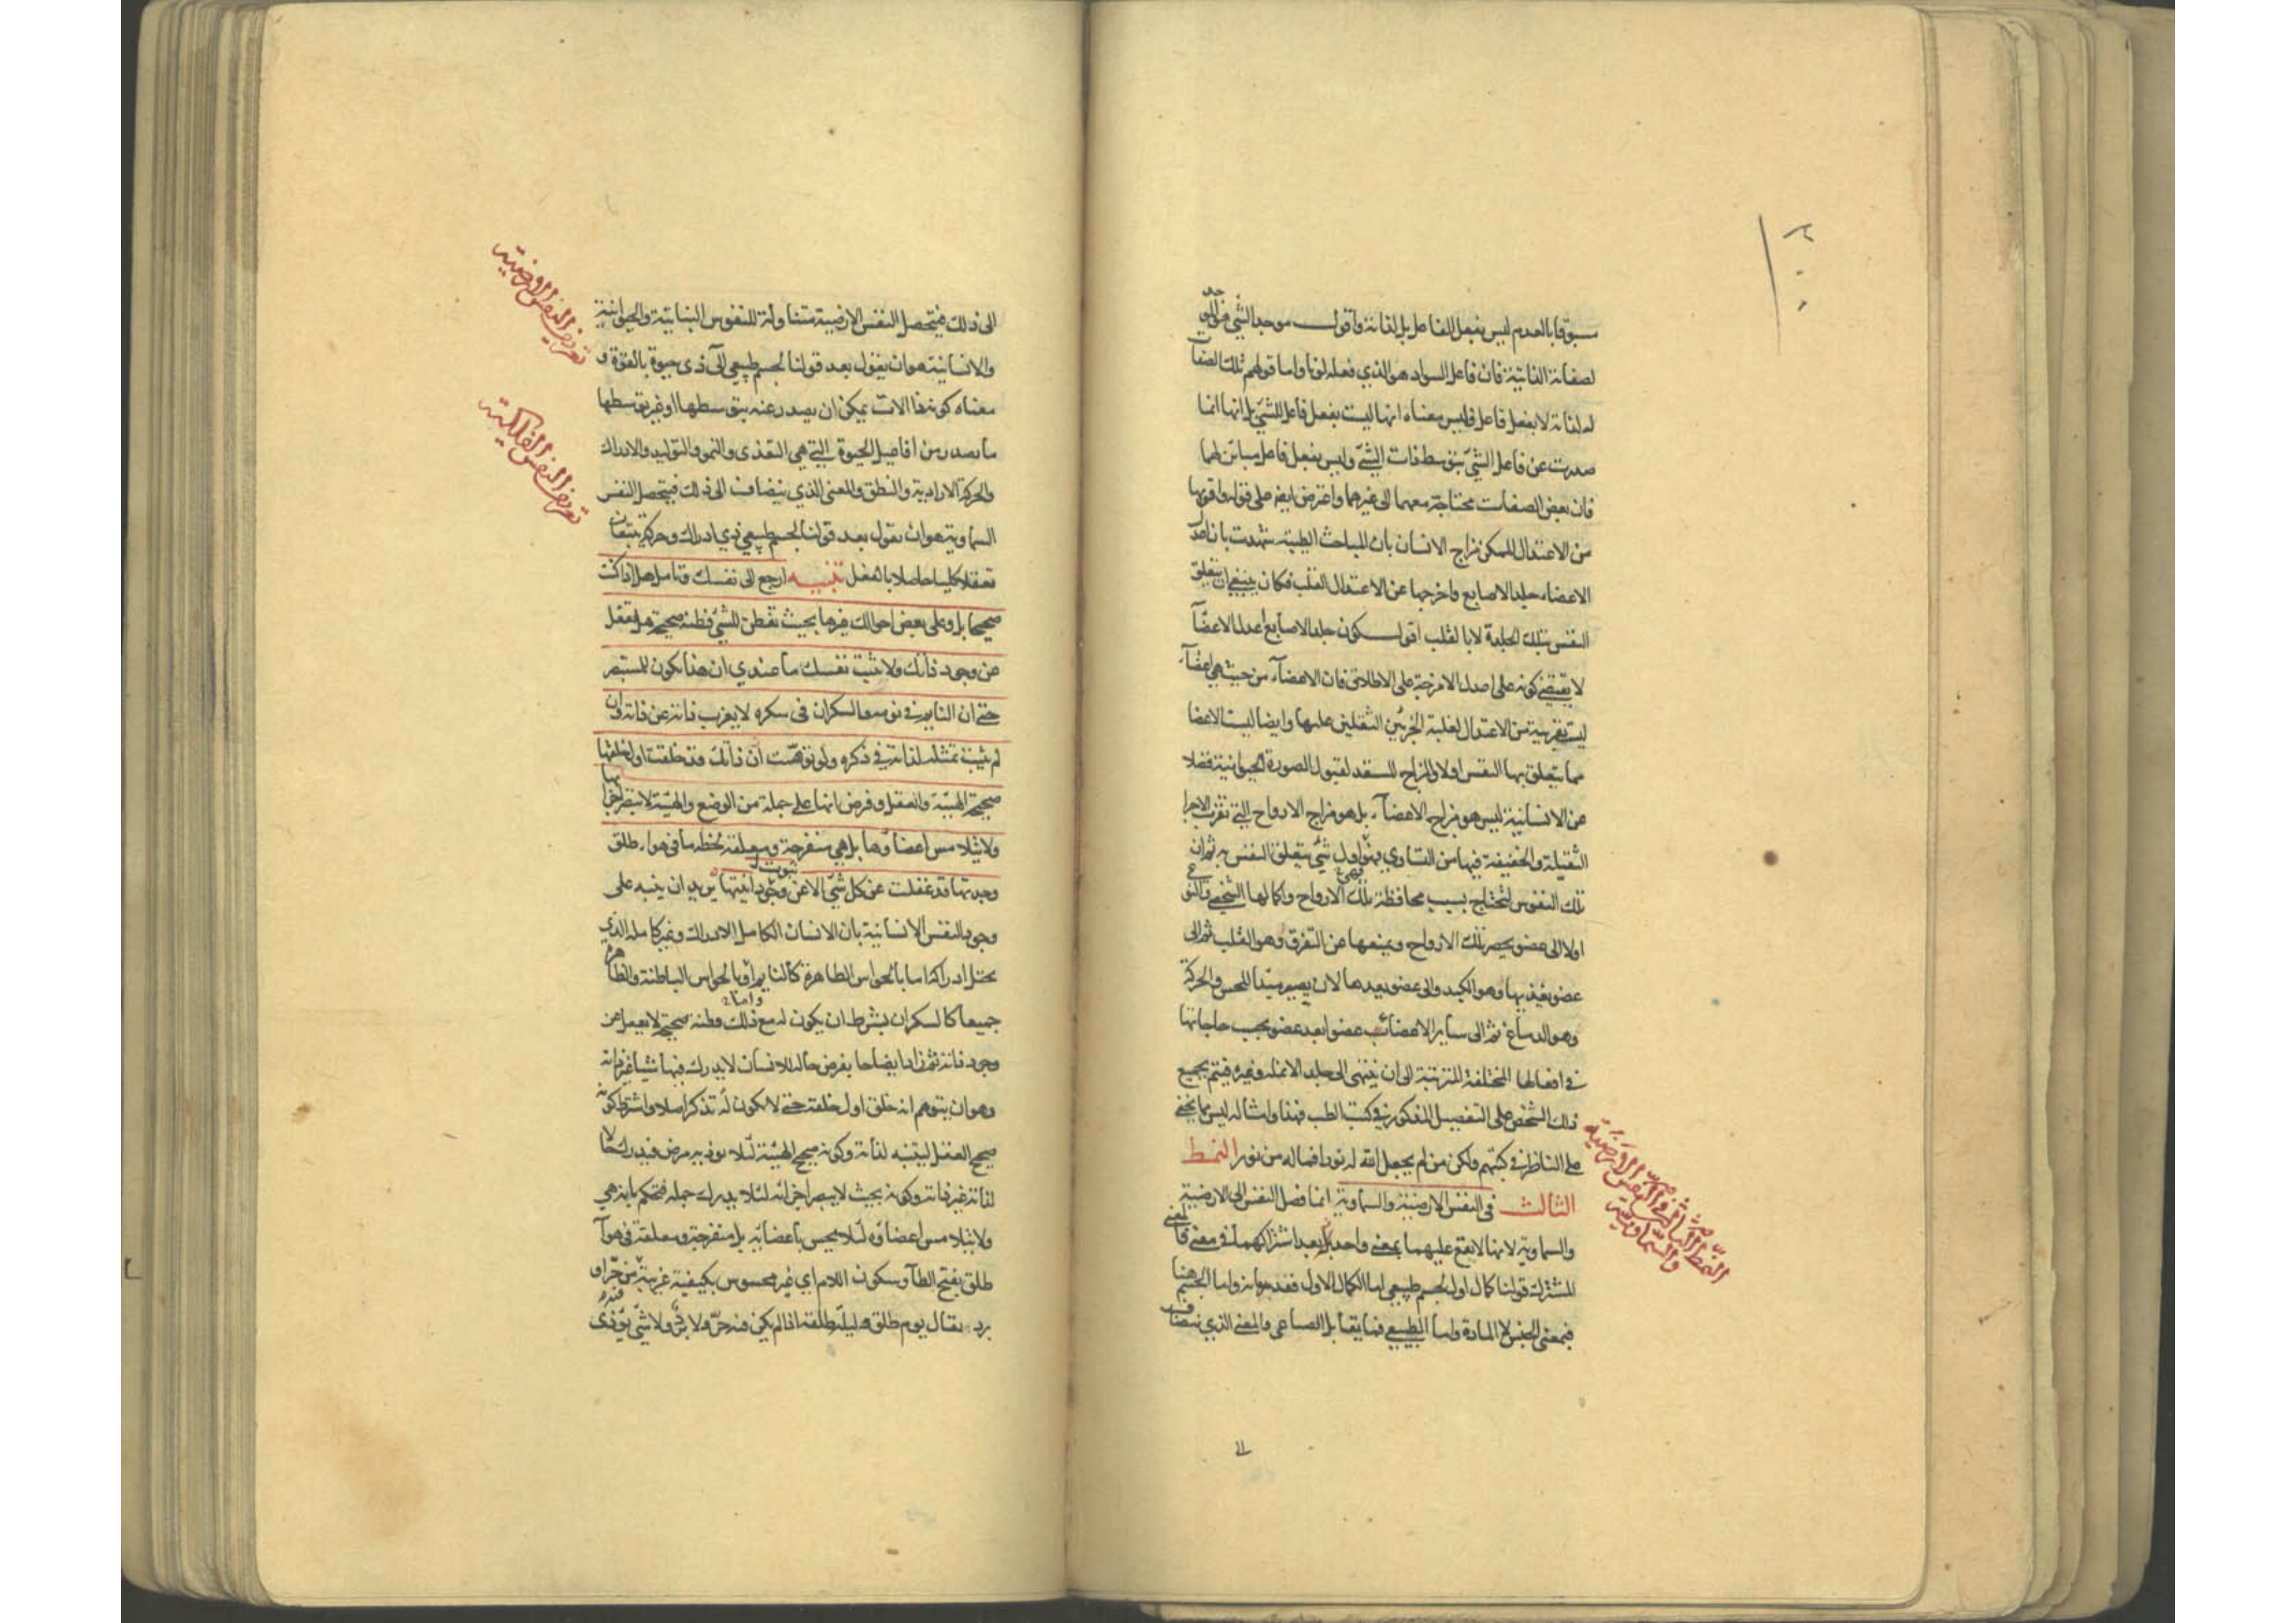 مسبوقا بالعدم ليس بفعل الفاعل بل لذاته واقول موجد الشئ هو الذى
لصفاته الذاتية فان فاعل السواد هو الذي فعله لونا واما قولهم تلك الصفات
له لذاته لا بفعل فاعل فليس معناه انها ليست بفعل فاعل الشئ بل انها انما
صدرت عن فاعل الشئ بتوسط ذات الشئ وليس بفعل فاعل مباين لهما
فان بعض الصفات محتاجة معهما الى غيرهما واعترض ايضا على قوله واقربها
من الاعتدال الممكن مزاج الانسان بان المباحث الطبية شهدت بان اعدل
الاعضاء جلد الاصابع واخرجها عن الاعتدال القلب فكان ينبغي ان يتعلق
النفس بتلك الجلدة لا بالقلب اقول كون جلد الاصابع اعدل الاعضآ
لا يقتضي كونه على اعدل الامزجة على الاطلاق فان الاعضآء من حيث هي اعضآء
ليست بقريبة من الاعتدال لغلبة الجزئين الثقيلين عليها وايضا ليست الاعضا
مما يتعلق بها النفس اولا والمزاج المستعد لقبول الصورة الحيوانية فضلا
عن الانسانية ليس هو مزاج الاعضآء بل هو مزاج الارواح التي تقرب الاجزا
الثقيلة والخفيفة فيها من التساوي فهو اول شئ يتعلق النفس به ثم ان
تلك النفوس تحتاج بسبب محافظة تلك الارواح واكمالها الشخصي والنوعي
اولا الى عضو يحصر تلك الارواح ويمنعها عن التفرق وهو القلب ثم الى
عضو يغذيها وهو الكبد والى عضو يعدها لان يصير مبدأ للحس والحركة
وهو الدماغ ثم الى ساير الاعضاء عضوا بعد عضو بحسب حاجاتها
في افعالها المختلفة المترتبة الى ان ينتهى الى جلد الانملة وغيره فيتم بجميع
ذلك الشخص على التفصيل المذكور في كتب الطب فهذا وامثاله ليس مما يخفى
على الناظر في كتبهم ولكن من لم يجعل الله له نورا فما له من نور النمط
الثالث في النفس الارضية والسماوية انما فصل النفس الى الارضية
والسماوية لانها لا يقع عليهما بمعنى واحد بل بعد اشتراكهما في معنى فالمعنى
المشترك قولنا كمال اول لجسم طبيعي اما الكمال الاول فقد مر بيانه واما الجسم هنا
فبمعنى الجنس لا المادة واما الطبيعي فما يقابل الصناعي والمعنى الذي ينضاف
النمط الثالث في النفس الارضية
والسماوية
الى ذلك فيتحصل النفس الارضية متناولة للنفوس النباتية والحيوانية
والانسانية هو ان يقول بعد قولنا لجسم طبيعي آلى ذى حيوة بالقوة و
معناه كونه ذا الات يمكن ان يصدر عنه بتوسطها او غير توسطها
ما يصدر من افاعيل الحيوة التي هي التغذى والنمو والتوليد والادراك
والحركة الارادية والنطق والمعنى الذي ينضاف الى ذلك فيتحصل النفس
السماوية هو ان نقول بعد قولنا لجسم طبيعي ذي ادراك وحركة يتبعان
تعقلا كليا حاصلا بالفعل تنبيه ارجع الى نفسك وتامل هل اذا كنت
صحيحا بل وعلى بعض احوالك غيرها بحيث تفطن للشئ فطنة صحيحة هل تغفل
عن وجود ذاتك ولا تثبت نفسك ما عندي ان هذا يكون للمستبصر
حتى ان النايم في نومه والسكران في سكره لا يعزب ذاته عن ذاته وان
لم يثبت تمثله لذاته في ذكره ولو توهمت ان ذاتك قد خلقت اول خلقها
صحيحة الهيئة والعقل وفرض انها على جملة من الوضع والهيئة لا يبصر اجزاءها
ولا يتلامس اعضاؤها بل هي منفرجة ومعلقة لحظة ما في هواء طلق
وجدتها قد غفلت عن كل شئ الا عن ثبوت انيتها يريد ان ينبه على
وجود النفس الانسانية بان الانسان الكامل الادراك وغير كامله الذي
يختل ادراكه اما بالحواس الظاهرة كالنايم او بالحواس الباطنة والظاهرة
جميعا كالسكران بشرط ان يكون له مع ذلك فطنة صحيحة لا يغفل عن
وجود ذاته ثم زاد ايضاحا بفرض حالة للانسان لا يدرك فيها شيئا غير ذاته
وهو ان يتوهم انه خلق اول خلقه حتى لا يكون له تذكر اصلا واشترط كونه
صحيح العقل ليتنبه لذاته وكونه صحيح الهيئة لئلا يوذيه مرض فيدرك حالا
لذاته غير ذاته وكونه بحيث لا يبصر اجزائه لئلا يدرك جملة فتحكم بانه هي
ولا يتلامس اعضاؤه لئلا يحس باعضائه بل منفرجة ومعلقة في هوآ
طلق بفتح الطآ وسكون اللام اي غير محسوس بكيفية غريبة من حر او
برد يقال يوم طلق وليلة طلقة اذا لم يكن فيه حر ولا قر ولا شئ يؤذى
تعريف النفس الارضية
تعريف النفس الفلكية